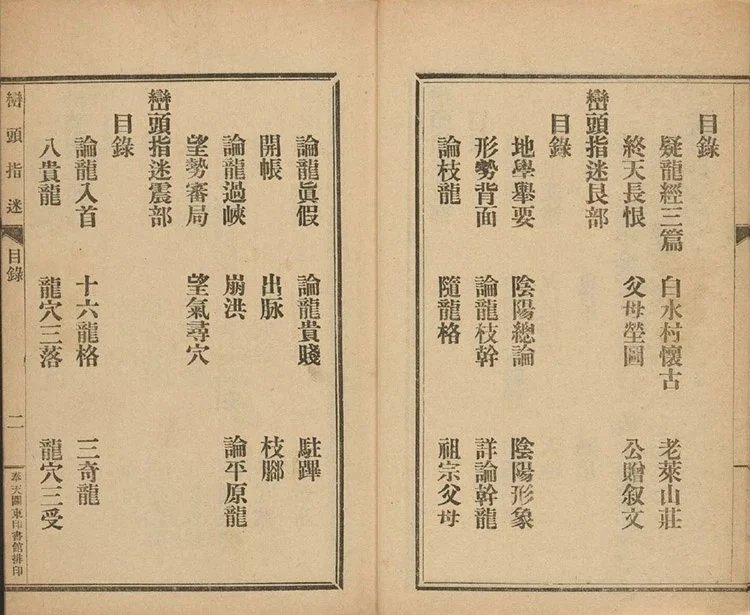 目錄
疑龍經三篇 白水村懷古 老萊山莊
終天長恨 父母塋圖 公贈叙文
巒頭指迷艮部
目錄
地學舉要 陰陽總論 陰陽形象
形勢背面 論龍枝幹 詳論幹龍
論枝龍 隨龍格 祖宗父母
論龍眞假 論龍貴賤 駐蹕
開帳 出脉 枝腳
論龍過峽 崩洪 論平原龍
望勢審局 望氣尋穴
巒頭指迷震部
目錄
論龍入首 十六龍格 三奇龍
八貴龍 龍穴三落 龍穴三受
巒頭指迷 目錄 二 奉天關東印書館排印